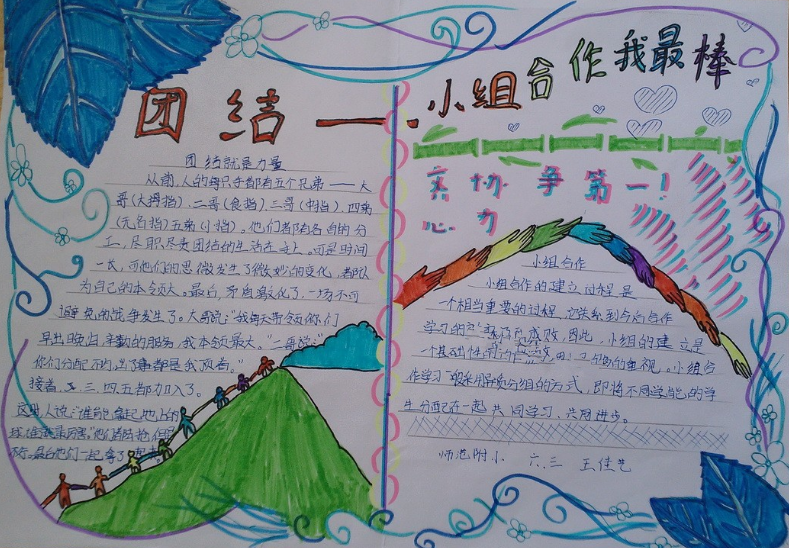 团结一.小组合作我最棒
齐心协力争第一!
团结就是力量
从前,人的每只手都有五个兄弟——大
哥(大拇指)、二哥(食指)、三哥(中指)、四弟
(无名指)五弟(小指)。他们都有各自的分
工,尽职尽责团结的生活在手上。可是时间
一长,可他们的思微发生了微妙的变化,都认
为自己的本领大。最后,矛盾激化了,一场不可
避免的战争发生了。大哥说:“我每天带领你们
早出晚归,辛勤的服务,我本领最大。”二哥说:“
你们分配不均,出了事都是我顶着。”
接着,三、四、五都加入了。
这时,人说:谁能拿起地上的
球,谁就最厉害。
最后他们一起拿了
小组合作
小组合作的建立过程是
一个相当重要的过程,它关系到今后合作
学习的成败,因此,小组的建立是
一个基础性的
作学习一般采用异质分组的方式,即将不同学能的学
生分配在一起共同学习,共同进步。
师范附小 六.三 王佳艺